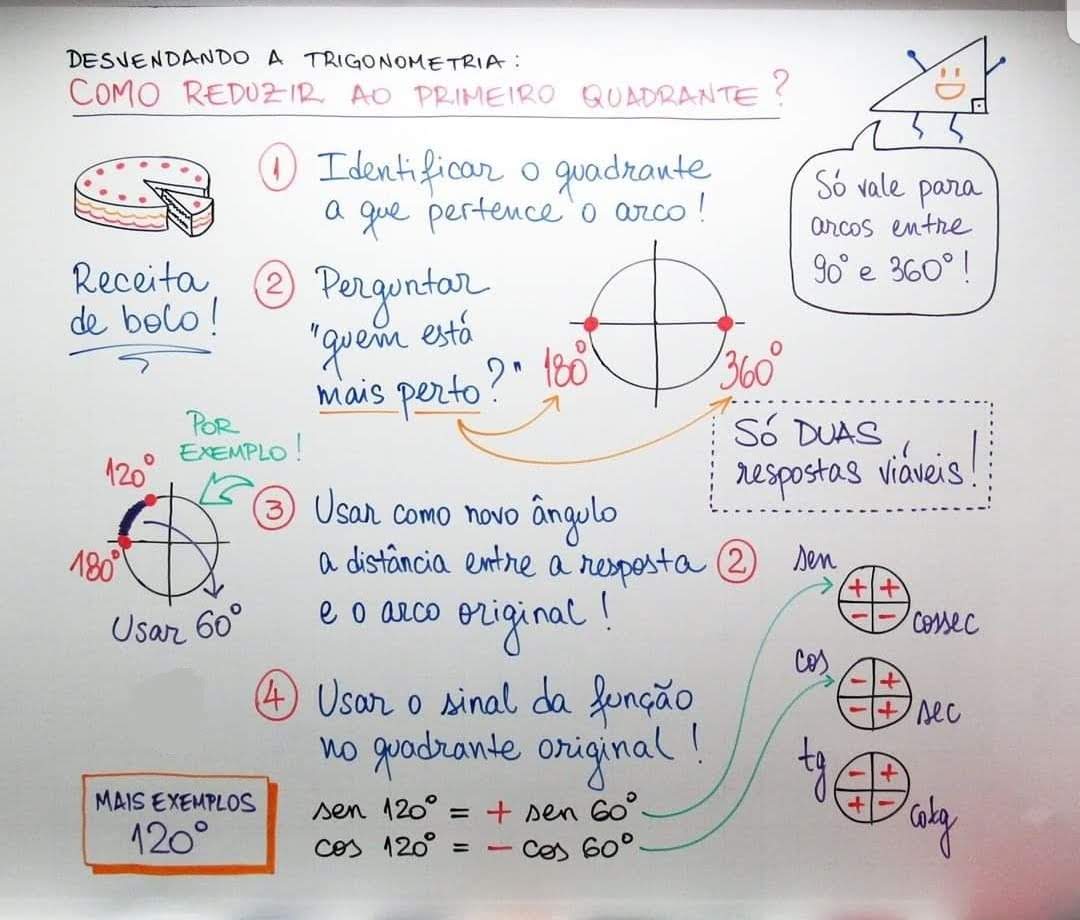 DESVENDANDO A TRIGONOMETRIA:
COMO REDUZIR AO PRIMEIRO QUADRANTE?
Só vale para
arcos entre
90° e 360°!
Receita
de bolo!
1 Identificar o quadrante
a que pertence o arco!
2 Perguntar
"quem está
mais perto?"
180°
360°
Só DUAS
respostas viáveis!
POR
EXEMPLO!
120°
180°
Usar 60°
3 Usar como novo ângulo
a distância entre a resposta 2
e o arco original!
4 Usar o sinal da função
no quadrante original!
sen 120° = + sen 60°
cos 120° = - cos 60°
sen
+ +
- -
cossec
cos
- +
- +
sec
tg
- +
+ -
cotg
MAIS EXEMPLOS
120°